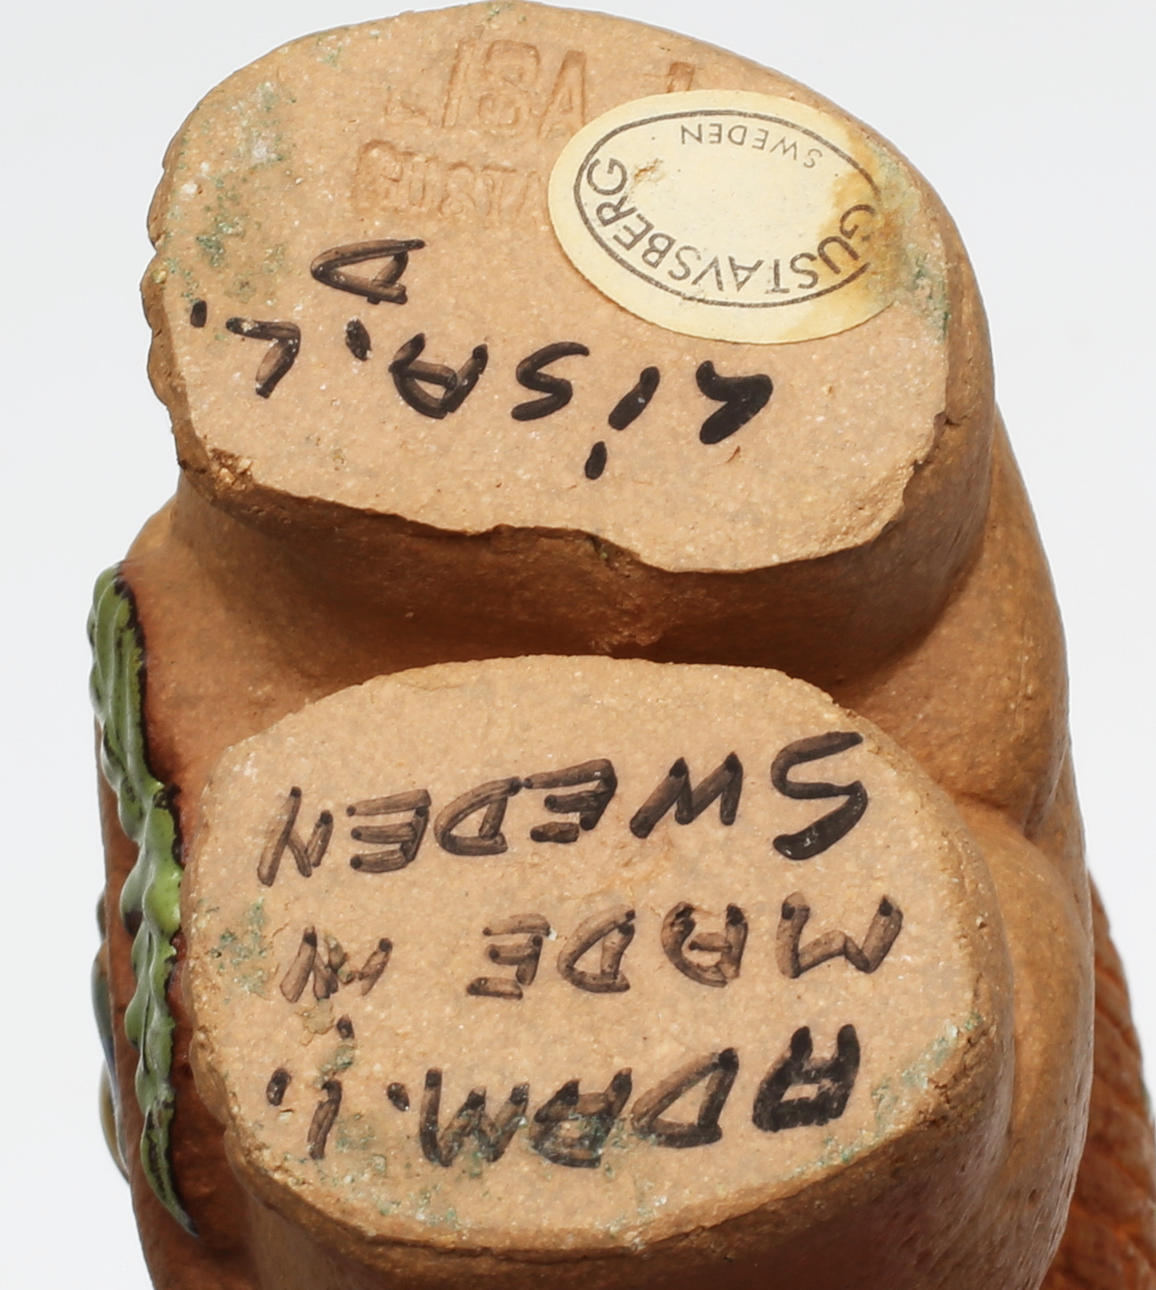 LISA
GUSTA
GUSTAVSBERG
SWEDEN
LiSA. L.
D
ADAM. i.
MADE IN
SWEDEN